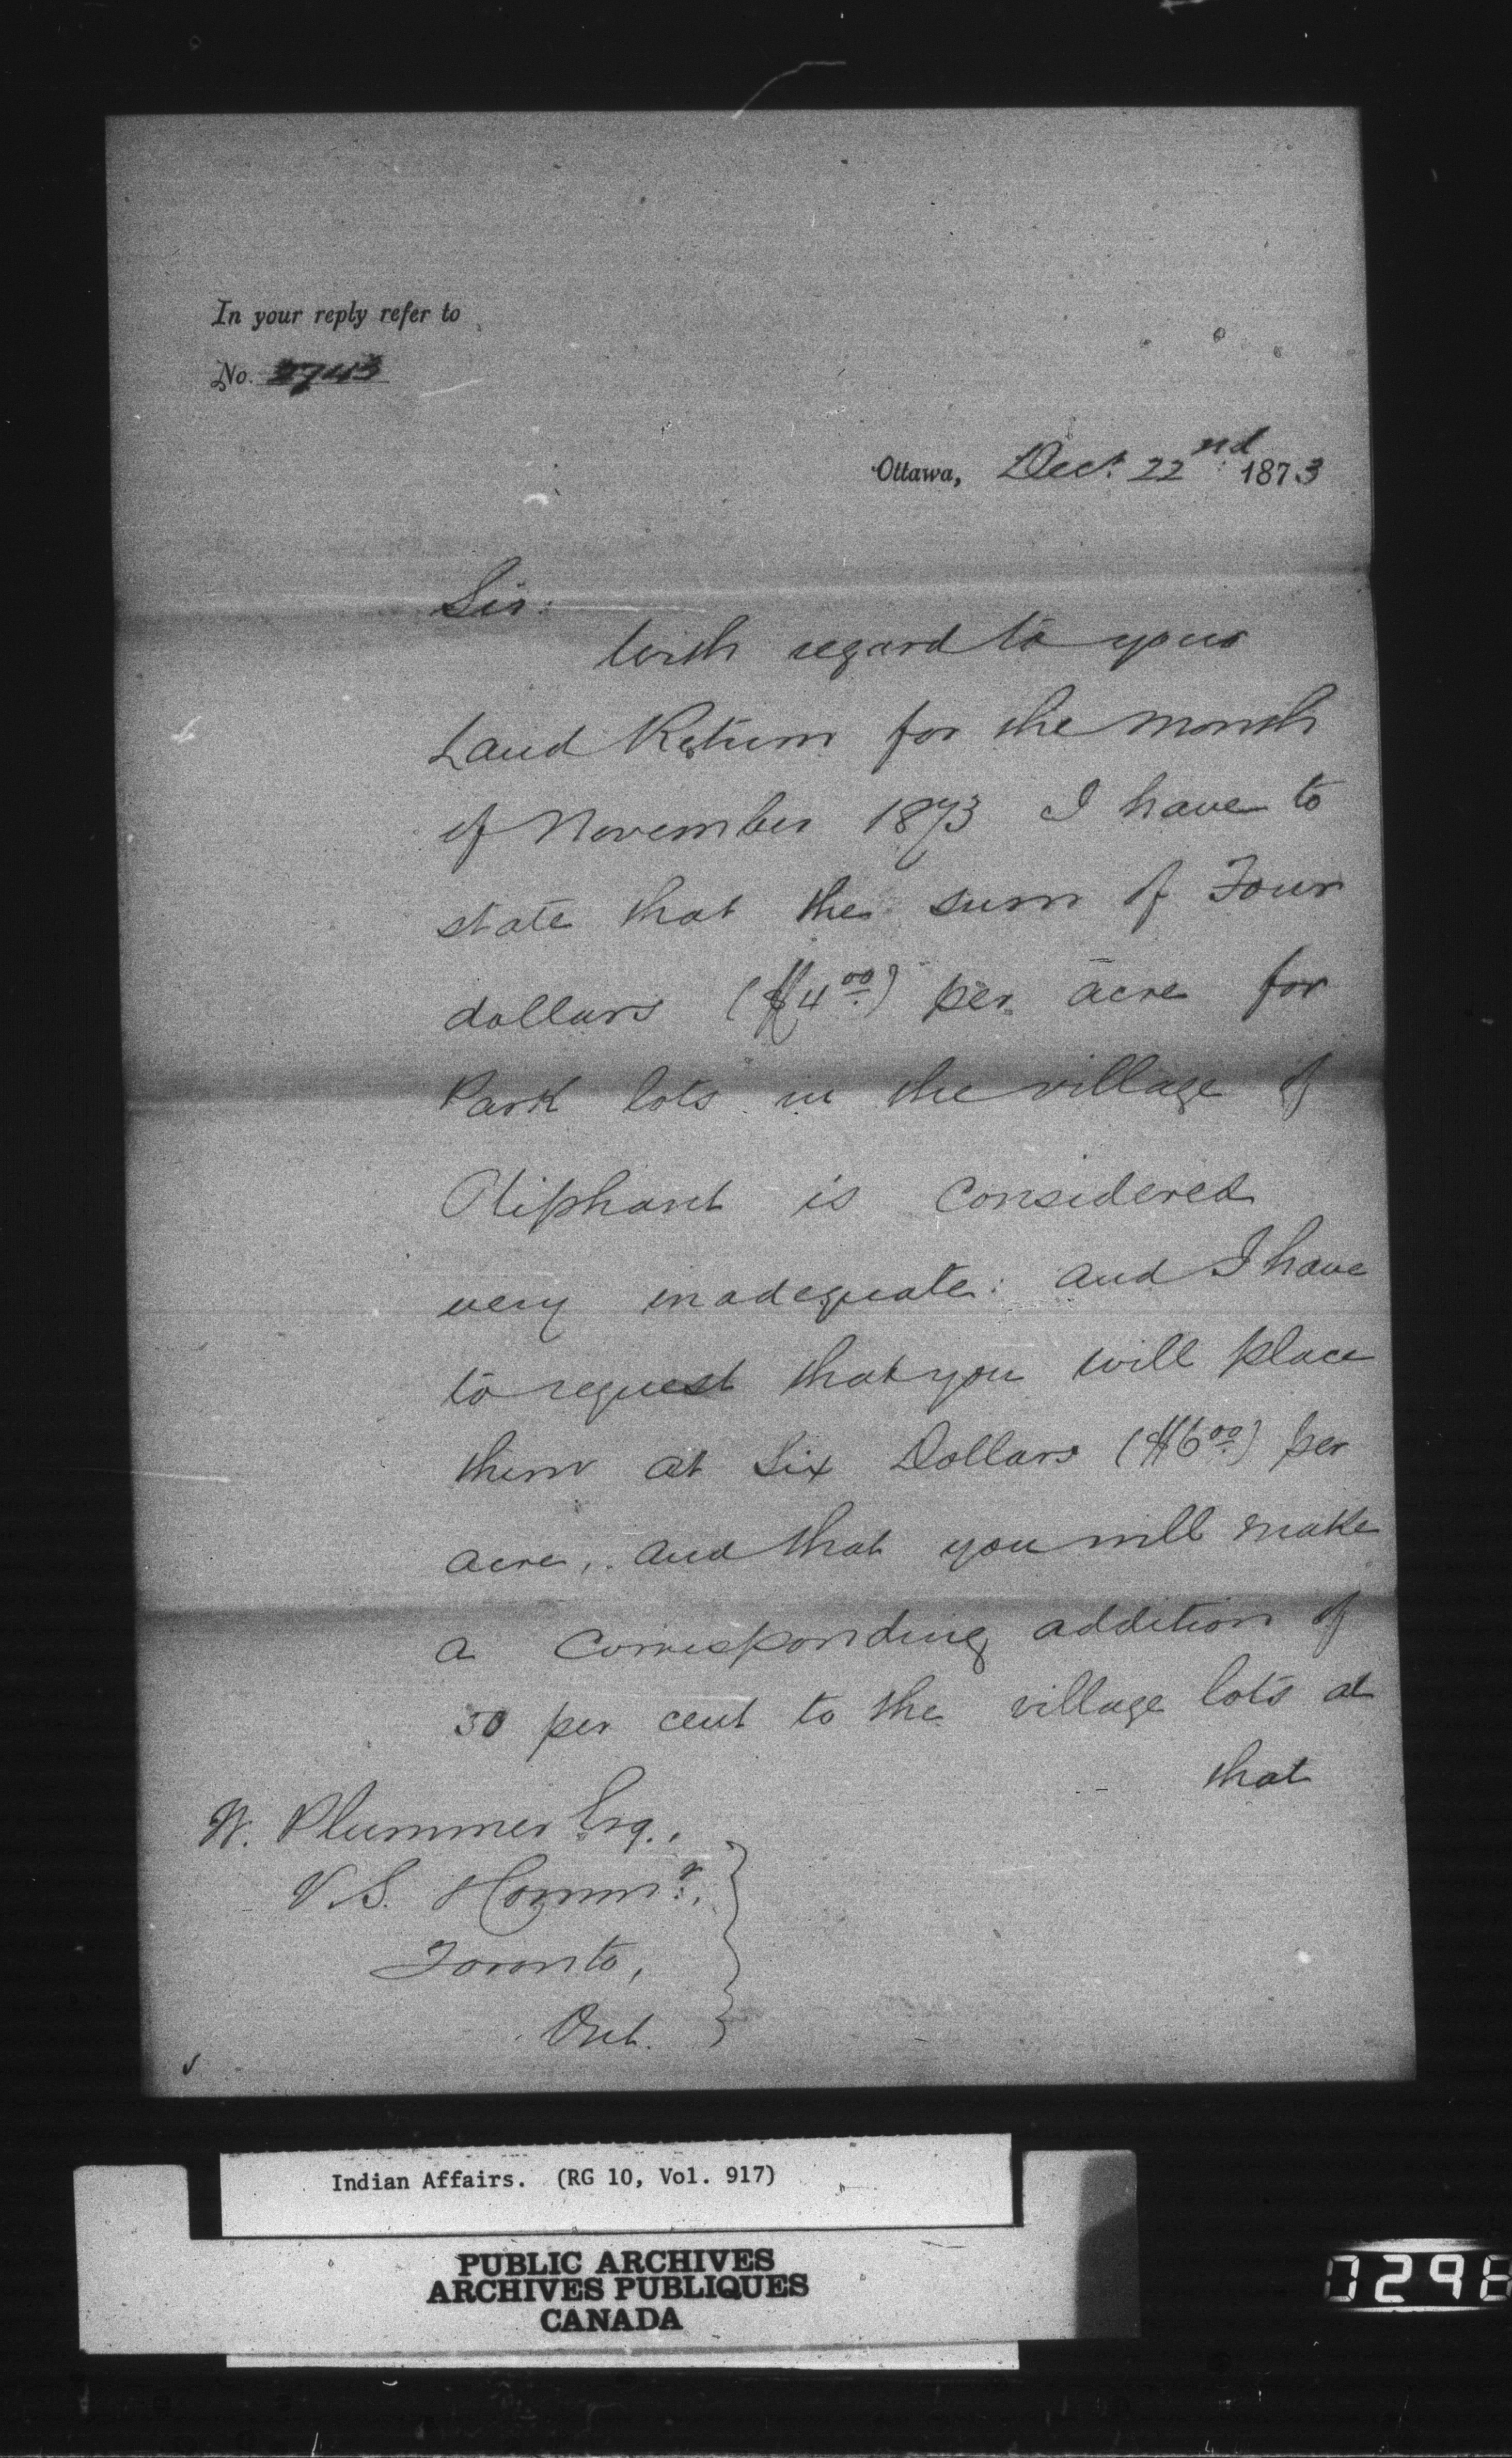 In your reply refer to
No. 2743
Ottawa, Dec. 22nd 1873
Sir:
With regard to your
Land Return for the month
of November 1873 I have to
state that the sum of Four
dollars ($4.00) per acre for
Park lots in the village of
Oliphant is considered
very inadequate: and I have
to request that you will place
them at Six Dollars ($6.00) per
acre, and that you will make
a corresponding addition of
50 per cent to the village lots at
that
W. Plummer Esq.,
V.S. Commr.,
Toronto,
Ont.
Indian Affairs. (RG 10, Vol. 917)
PUBLIC ARCHIVES
ARCHIVES PUBLIQUES
CANADA
0298